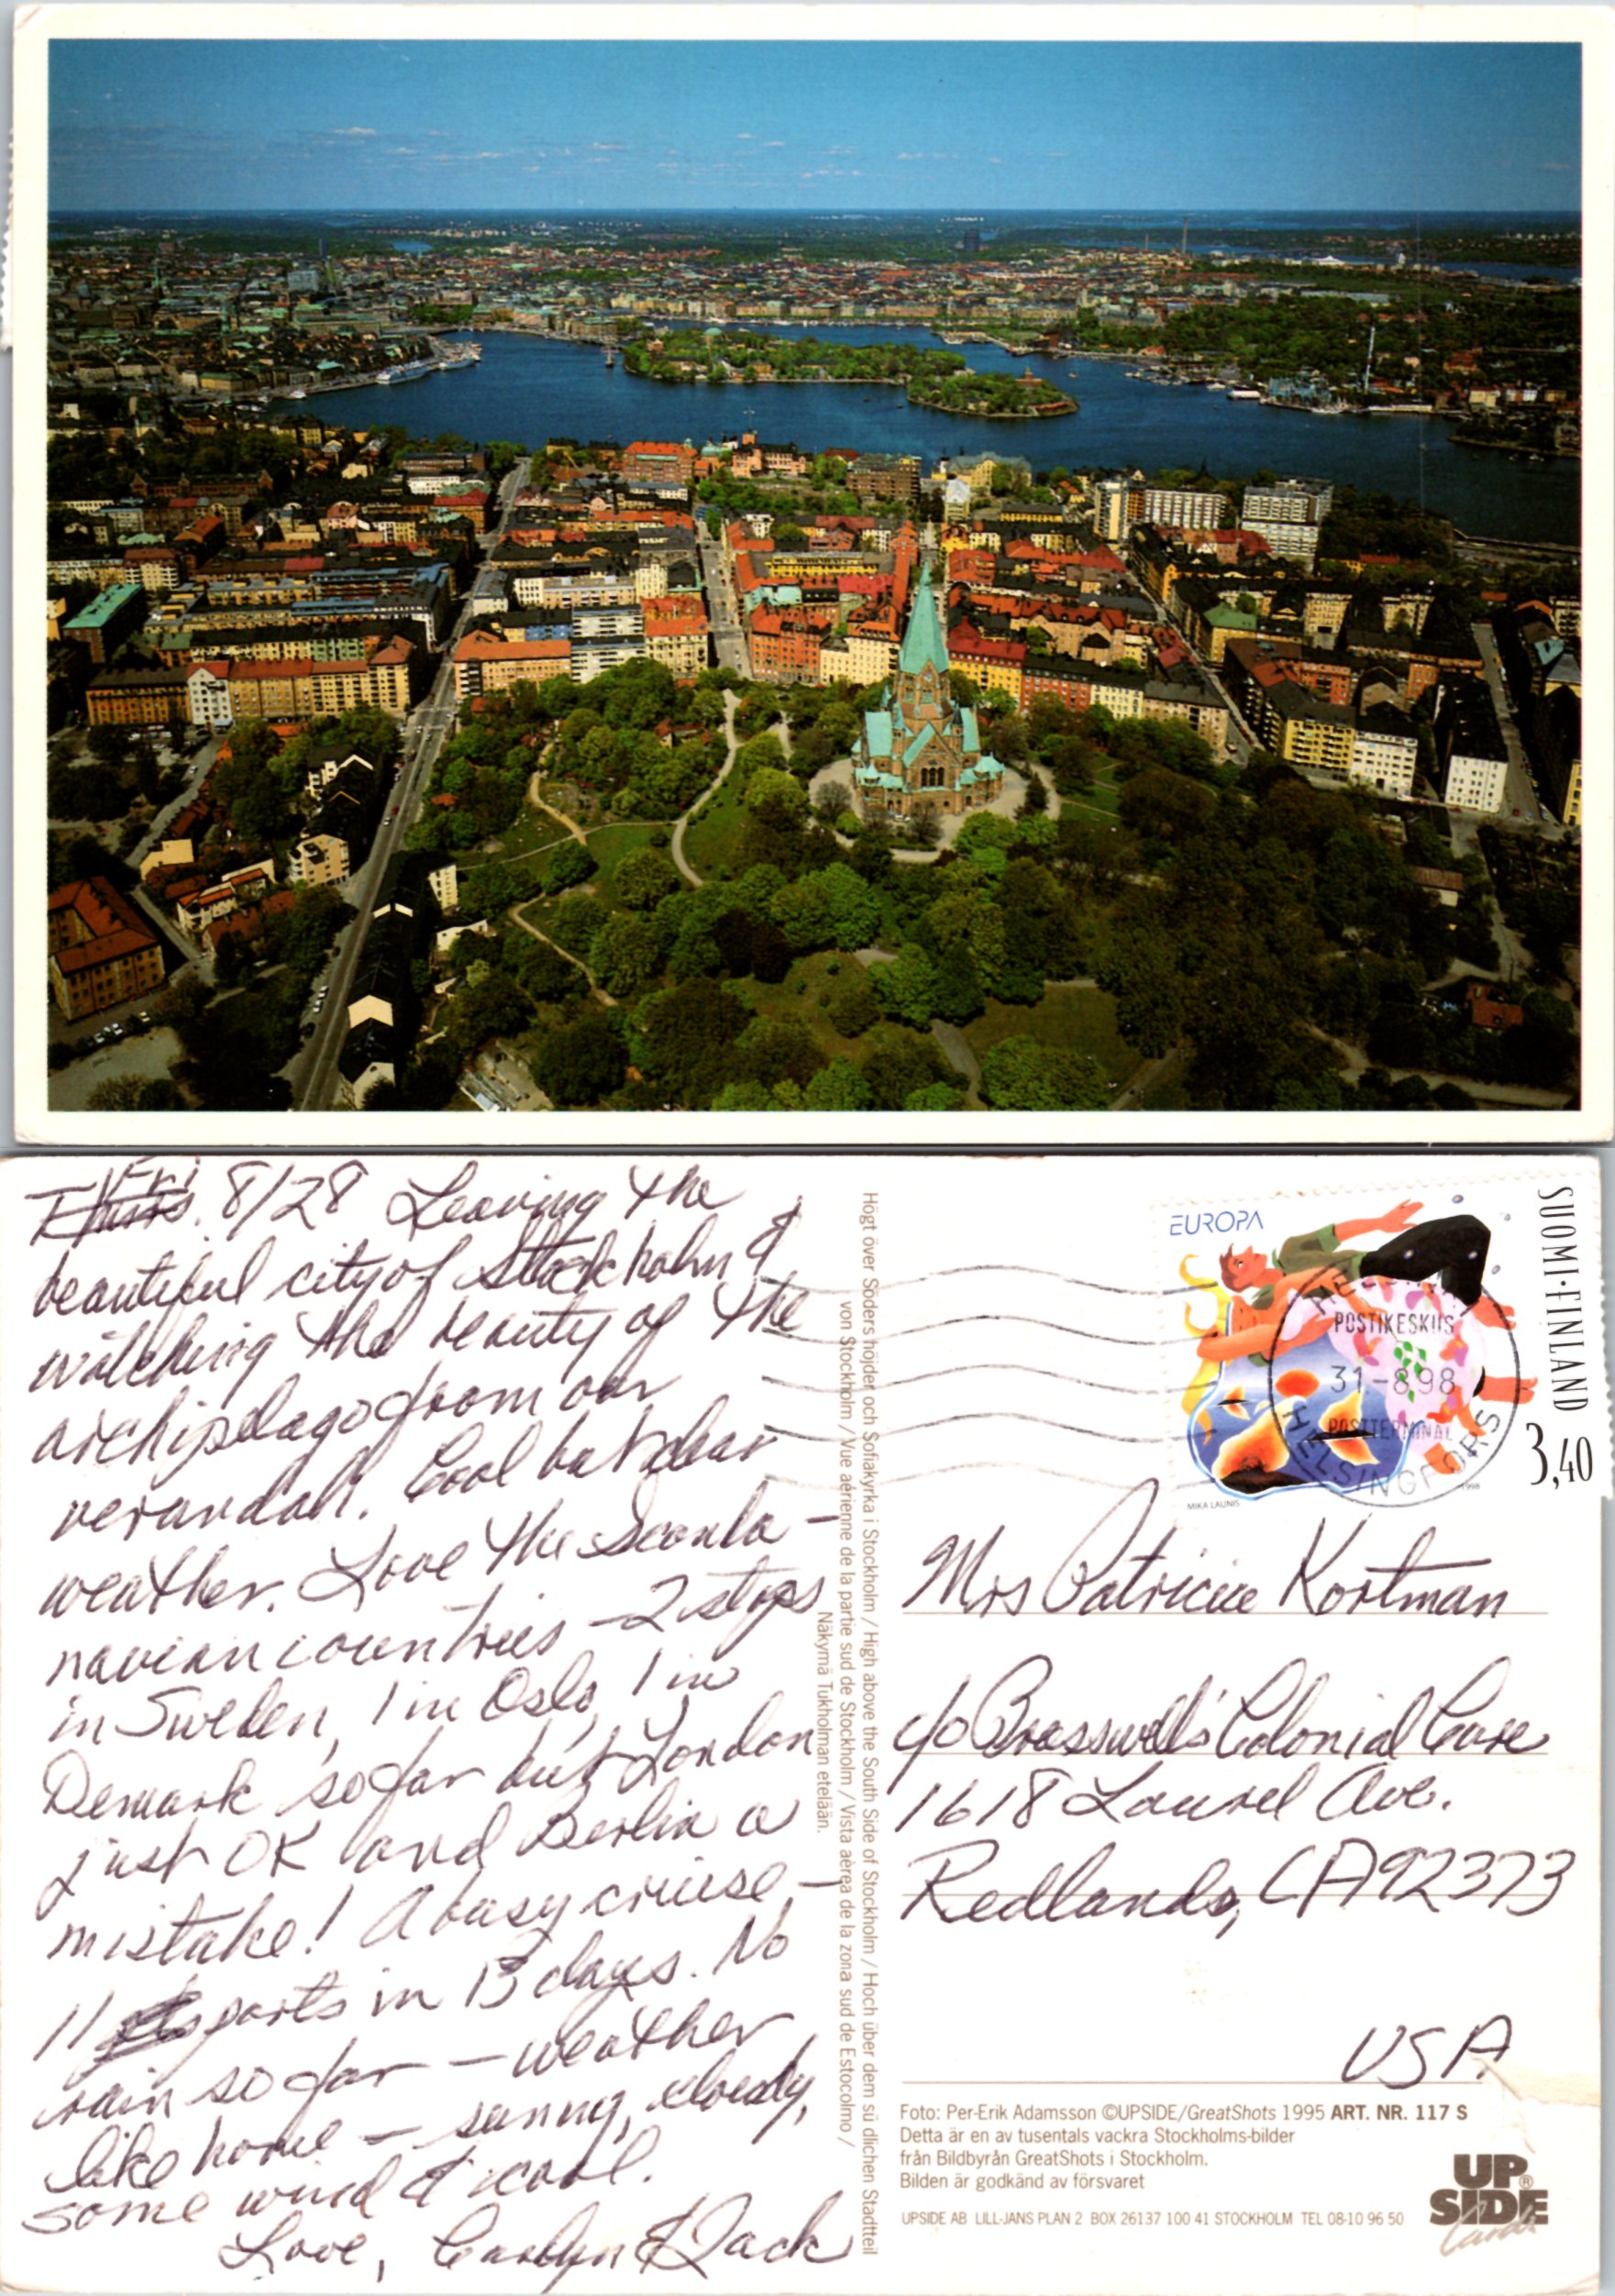 Fri
Thurs. 8/28 Leaving the
beautiful city of Stockholm &
watching the beauty of the
archipelago from our
verandah. Cool but clear
weather. Love the Scanda-
navian countries - 2 stops
in Sweden, 1 in Oslo, 1 in
Demark so far but London
just OK and Berlin a
mistake! A busy cruise -
11 ports in 13 days. No
rain so far - weather
like home - sunny, cloudy,
some wind & cool.
Love, Carolyn & Jack
Högt över Söders höjder och Sofiakyrka i Stockholm / High above the South Side of Stockholm / Hoch über dem sü dlichen Stadtteil
von Stockholm / Vue aérienne de la partie sud de Stockholm / Vista aérea de la zona sud de Estocolmo /
Näkymä Tukholman etelään.
EUROPA
SUOMI·FINLAND
3,40
MIKA LAUNIS
1998
POSTIKESKUS
31-8.98
POSTTERMINAL
HELSINGFORS
Mrs Patricia Kortman
c/o Brasswell's Colonial Care
1618 Laurel Ave.
Redlands, CA 92373
USA
Foto: Per-Erik Adamsson ©UPSIDE/GreatShots 1995 ART. NR. 117 S
Detta är en av tusentals vackra Stockholms-bilder
från Bildbyrån GreatShots i Stockholm.
Bilden är godkänd av försvaret
UPSIDE AB LILL-JANS PLAN 2 BOX 26137 100 41 STOCKHOLM TEL 08-10 96 50
UP
SIDE
Cards